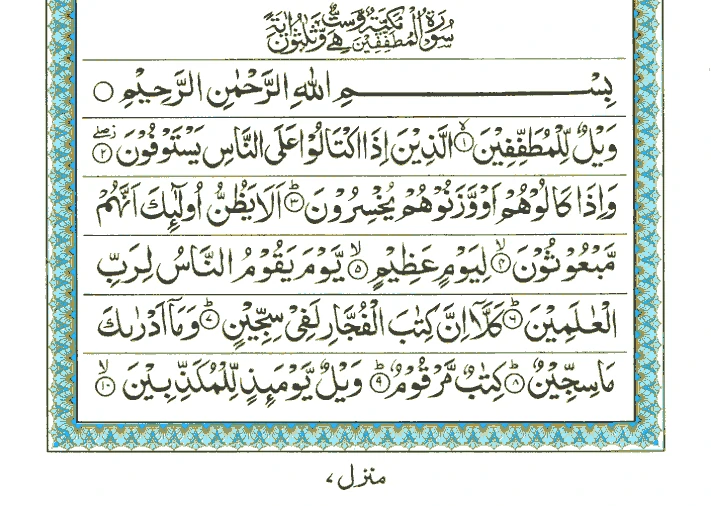 سُوْرَةُ الْمُطَفِّفِيْنَ مَكِّيَّةٌ وَّهِيَ سِتٌّ وَّثَلٰثُوْنَ اٰيَةً
بِسْمِ اللهِ الرَّحْمٰنِ الرَّحِيْمِ ○
وَيْلٌ لِّلْمُطَفِّفِيْنَ ۙ‏﴿۱﴾ الَّذِيْنَ اِذَا اكْتَالُوْا عَلَى النَّاسِ يَسْتَوْفُوْنَ ﴿۲﴾
وَاِذَا كَالُوْهُمْ اَوْ وَّزَنُوْهُمْ يُخْسِرُوْنَ ؕ﴿۳﴾ اَلَا يَظُنُّ اُولٰٓئِكَ اَنَّهُمْ
مَّبْعُوْثُوْنَ ۙ﴿۴﴾ لِيَوْمٍ عَظِيْمٍ ۙ﴿۵﴾ يَّوْمَ يَقُوْمُ النَّاسُ لِرَبِّ
الْعٰلَمِيْنَ ؕ﴿۶﴾ كَلَّاۤ اِنَّ كِتٰبَ الْفُجَّارِ لَفِيْ سِجِّيْنٍ ؕ﴿۷﴾ وَمَاۤ اَدْرٰىكَ
مَا سِجِّيْنٌ ؕ﴿۸﴾ كِتٰبٌ مَّرْقُوْمٌ ؕ﴿۹﴾ وَيْلٌ يَّوْمَئِذٍ لِّلْمُكَذِّبِيْنَ ۙ﴿۱۰﴾
منزل ۷